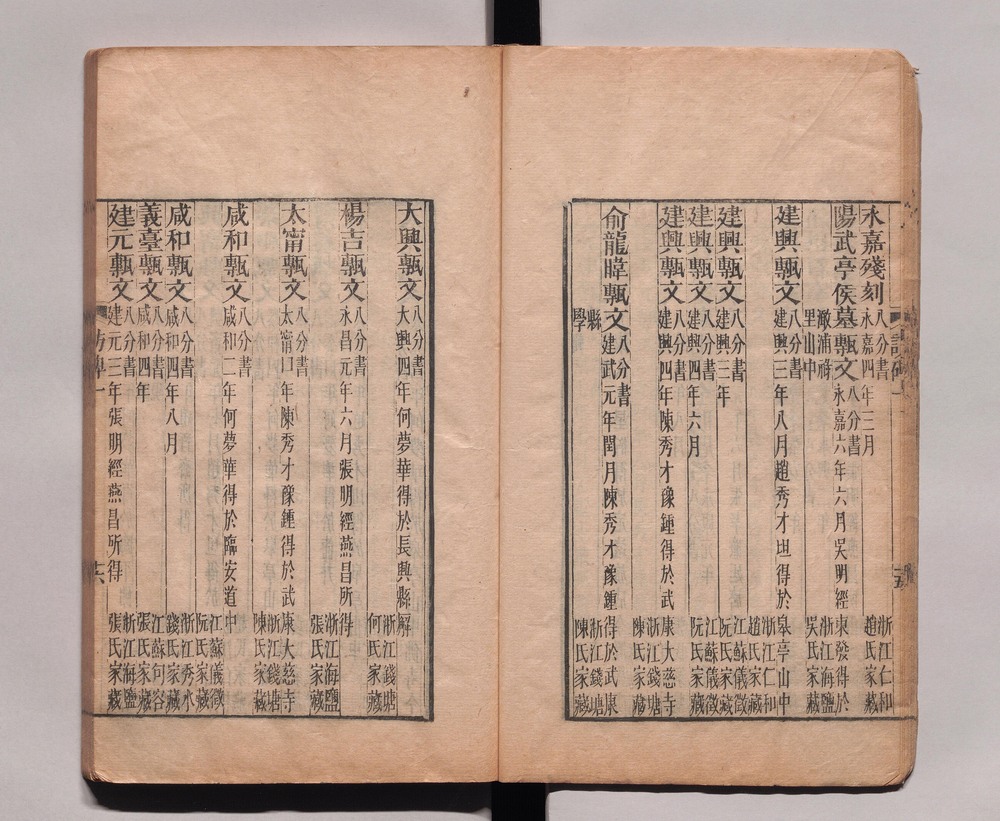 永嘉殘刻 八分書 永嘉四年三月 浙江仁和趙氏家藏
陽武亭侯墓甎文 八分書 永嘉六年六月吳明經東發得於
澉浦禪里山中 浙江海鹽吳氏家藏
建興甎文 八分書 建興三年八月趙秀才坦得於皋亭山中 浙江仁和趙氏家藏
建興甎文 八分書 建興三年 江蘇儀徵阮氏家藏
建興甎文 八分書 建興四年六月 江蘇儀徵阮氏家藏
建興甎文 八分書 建興四年陳秀才豫鍾得於武康大慈寺 浙江錢塘陳氏家藏
俞龍暐甎文 八分書 建武元年閏月陳秀才豫鍾得於武康
縣學 浙江錢塘陳氏家藏
五
大興甎文 八分書 大興四年何夢華得於長興縣解 浙江錢塘何氏家藏
楊吉甎文 八分書 永昌元年六月張明經燕昌所得 浙江海鹽張氏家藏
太甯甎文 八分書 太甯口年陳秀才豫鍾得於武康大慈寺 浙江錢塘陳氏家藏
咸和甎文 八分書 咸和二年何夢華得於臨安道中 江蘇儀徵阮氏家藏
咸和甎文 八分書 咸和四年八月 浙江秀水錢氏家藏
義臺甎文 八分書 咸和四年 江蘇句容張氏家藏
建元甎文 八分書 建元三年張明經燕昌所得 浙江海鹽張氏家藏